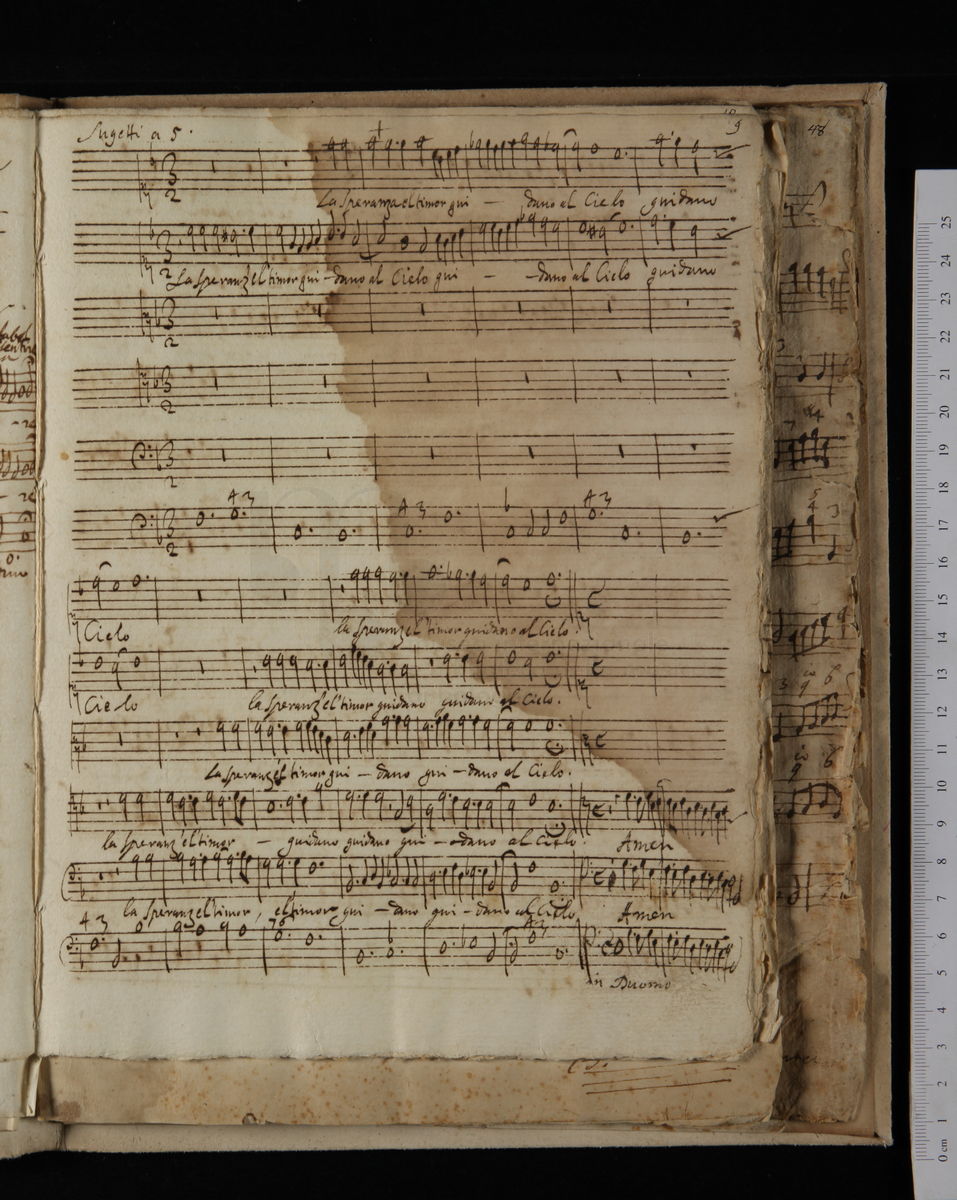 Sugetti a 5.
9
48
La speranza el timor gui - dano al Cielo guidano
La speranz' el timor gui - dano al Cielo gui - dano al Cielo guidano
4 3
4 3
4 3
Cielo la speranz' el timor guidano al Cielo.
Cielo la speranz' el timor guidano guidano al Cielo.
la speranz' el timor gui - dano gui - dano al Cielo.
la speranz' el timor - guidano guidano gui - dano al Cielo. Amen
la speranz' el timor, el timor gui - dano gui - dano al Cielo Amen
4 3
in Duomo